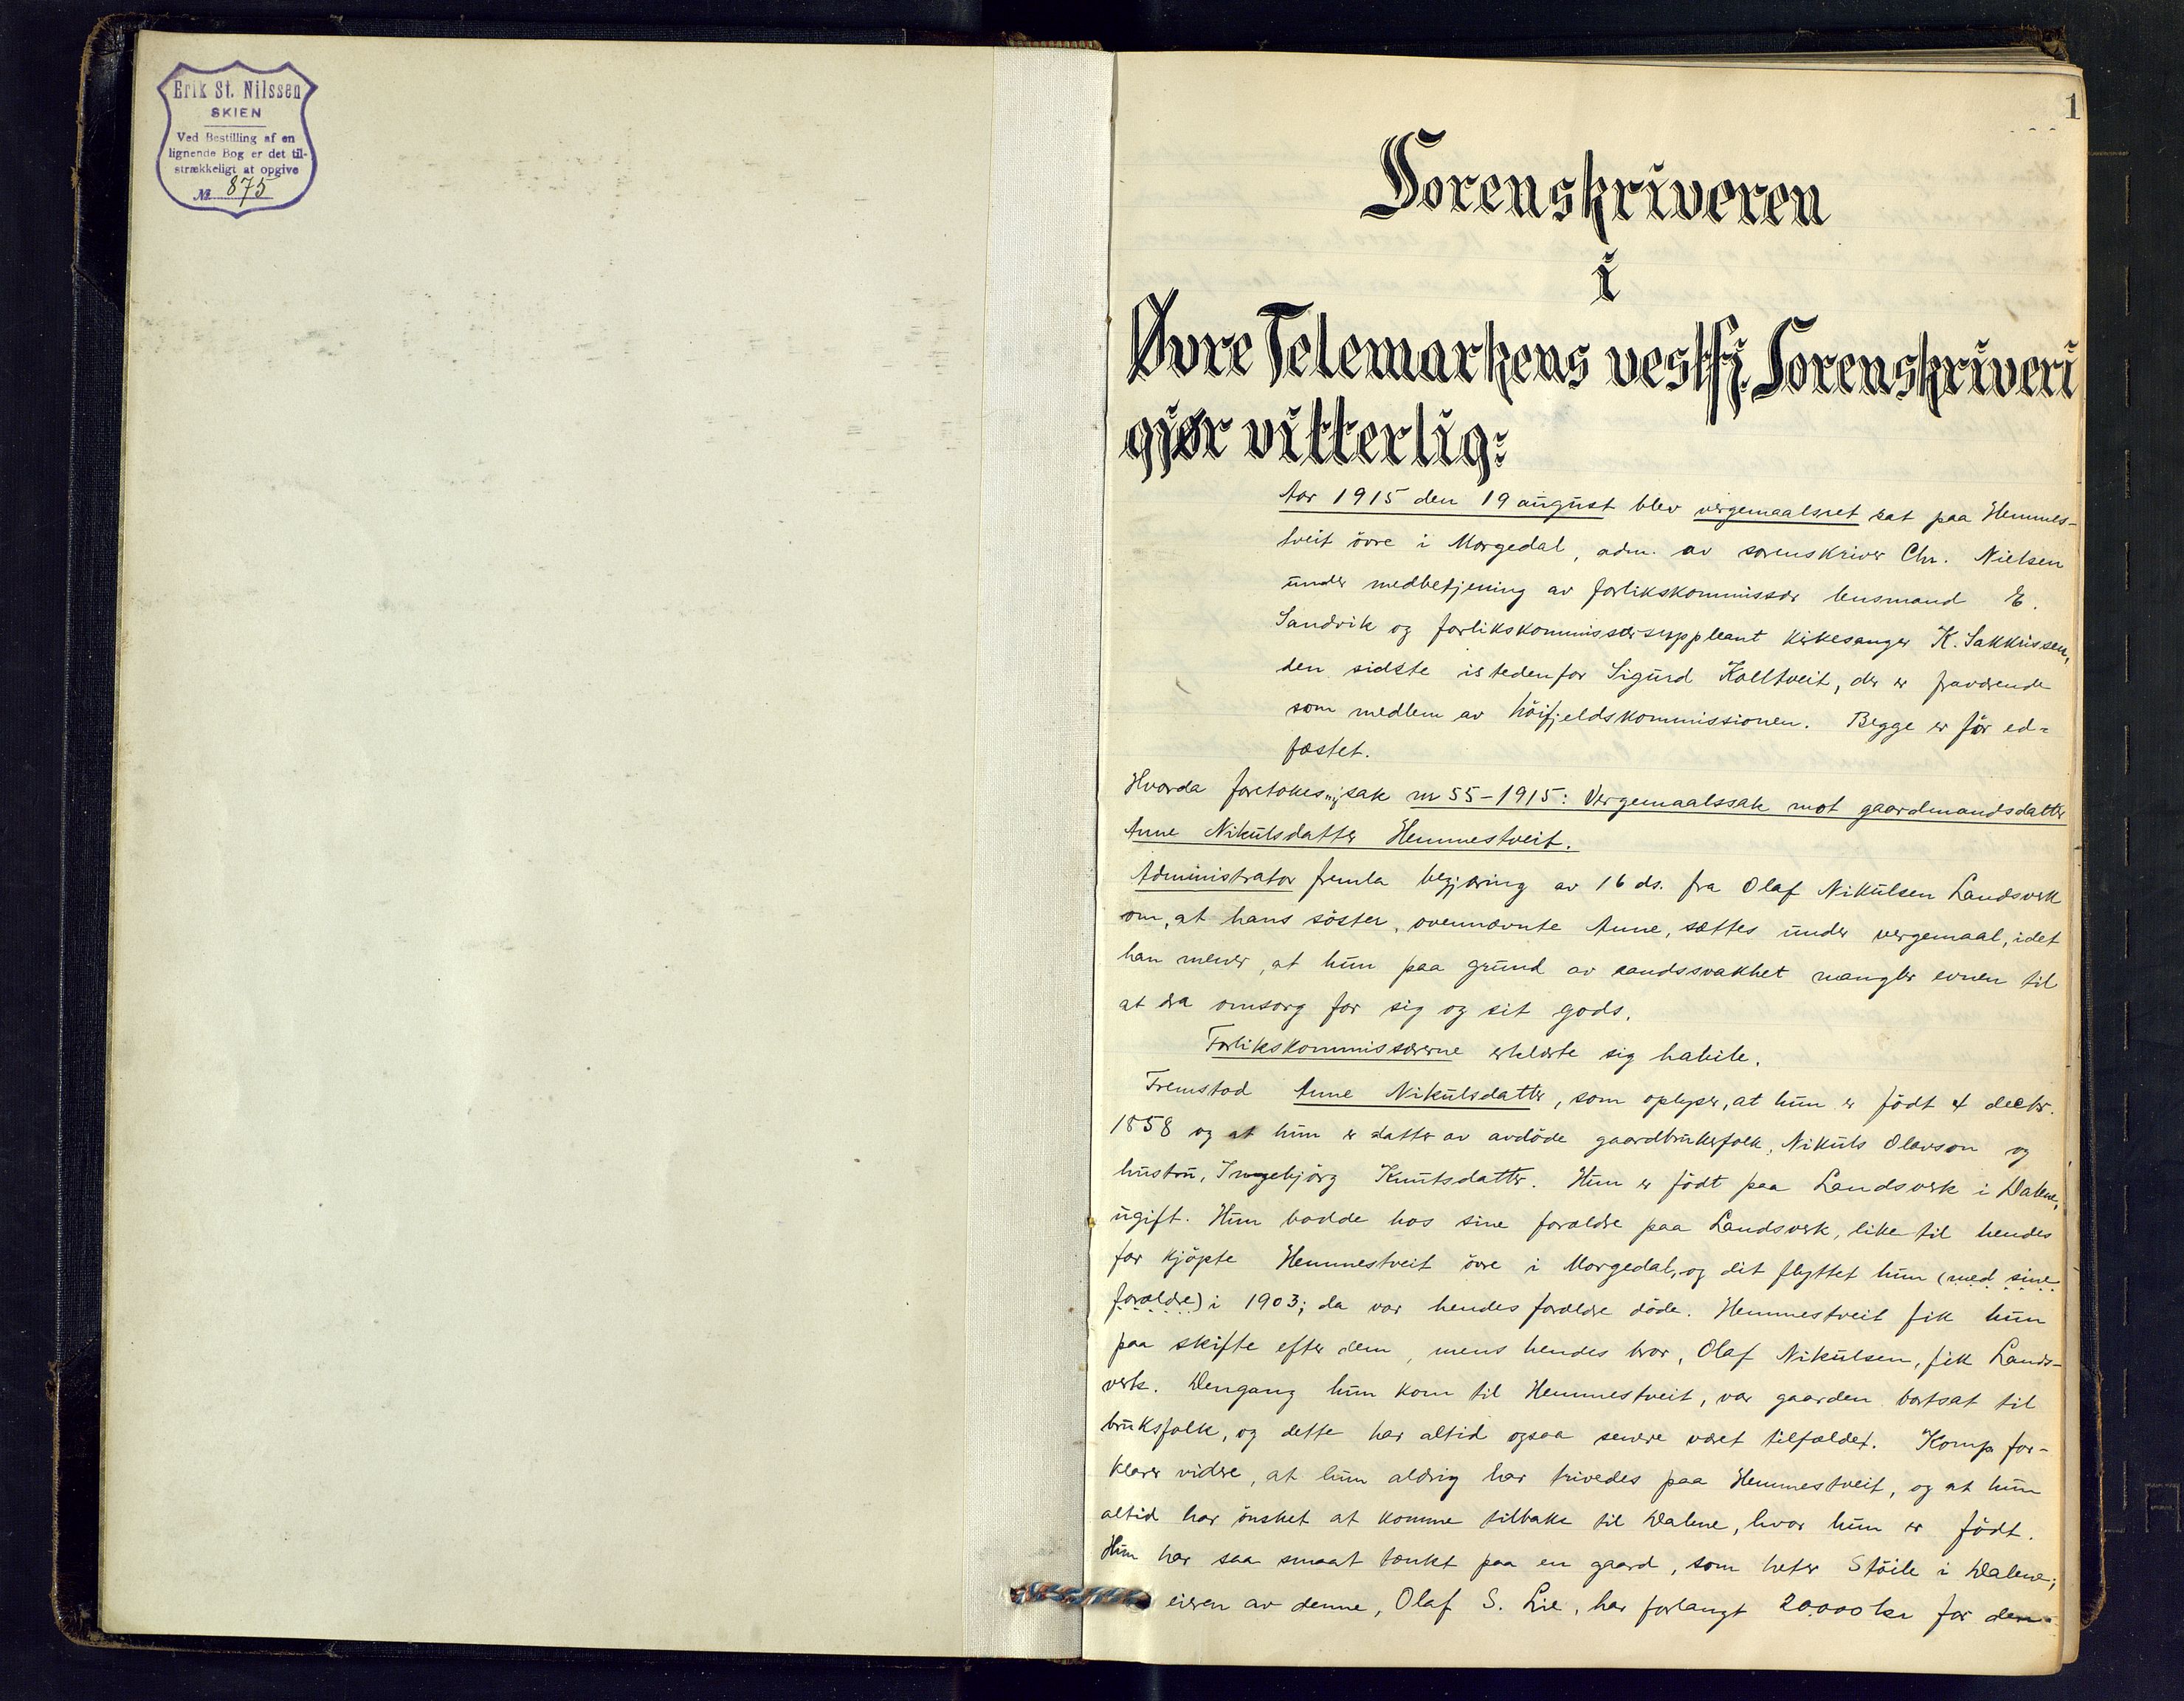 Erik St. Nilssen
SKIEN
Ved Bestilling af en
lignende Bog er det til-
strækkeligt at opgive
№ 875
1
Sorenskriveren
i
Øvre Telemarkens vestfj. Sorenskriveri
gjør vitterlig:
Aar 1915 den 19 august blev vergemaalsret sat paa Hemmes-
tveit övre i Morgedal, adm. av sorenskriver Chr. Nielsen
under medbetjening av forlikskommissær lensmand E.
Sandvik og forlikskommissærsuppleant kirkesanger K. Sakkrissen,
den sidste istedenfor Sigurd Kolltveit, der er fraværende
som medlem av höifjeldskommissionen. Begge er för ed-
fæstet.
Hvorda foretokes sak nr 55-1915: Vergemaalssak mot gaardmandsdatter
Anne Nikulsdatter Hemmestveit.
Administrator fremla begjæring av 16 ds. fra Olaf Nikulsen Landsverk
om, at hans söster, ovennævnte Anne, sættes under vergemaal, idet
han mener, at hun paa grund av sandssvakhet mangler evnen til
at dra omsorg for sig og sit gods.
Forlikskommissærerne erklærte sig habile.
Fremstod Anne Nikulsdatter, som oplyser, at hun er födt 4 decbr.
1858 og at hun er datter av avdöde gaardbrukerfolk, Nikuls Olavson og
hustru, Ingebjörg Knutsdatter. Hun er födt paa Landsverk i Dalene,
ugift. Hun bodde hos sine forældre paa Landsverk, like til hendes
far kjöpte Hemmestveit övre i Morgedal, og dit flyttet hun (med sine
forældre) i 1903; da var hendes forældre döde. Hemmestveit fik hun
paa skifte efter dem, mens hendes bror, Olaf Nikulsen, fik Lands-
verk. Dengang hun kom til Hemmestveit, var gaarden bortsat til
bruksfolk, og dette har altid ogsaa senere været tilfældet. Komp. for-
klarer videre, at hun aldrig har trivedes paa Hemmestveit, og at hun
altid har önsket at komme tilbake til Dalene, hvor hun er födt.
Hun har saa smaat tænkt paa en gaard, som heter Stöile i Dalene;
eieren av denne, Olaf S. Lie, har forlangt 20.000 kr for den